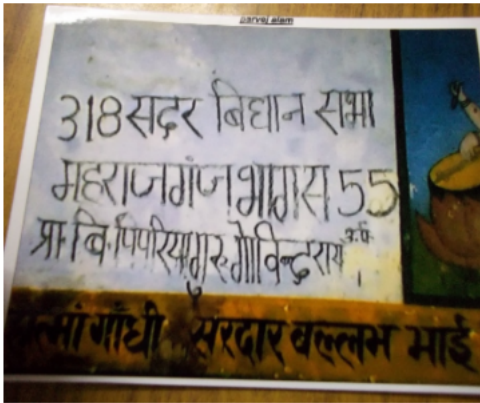 parvej alam
318 सदर बिधान सभा
महराजगंज भाग सं 55
प्रा. बि. पिपरिया गुरु गोविन्द राय उ.प्र.
त्मां गाँधी सरदार बल्लभ भाई